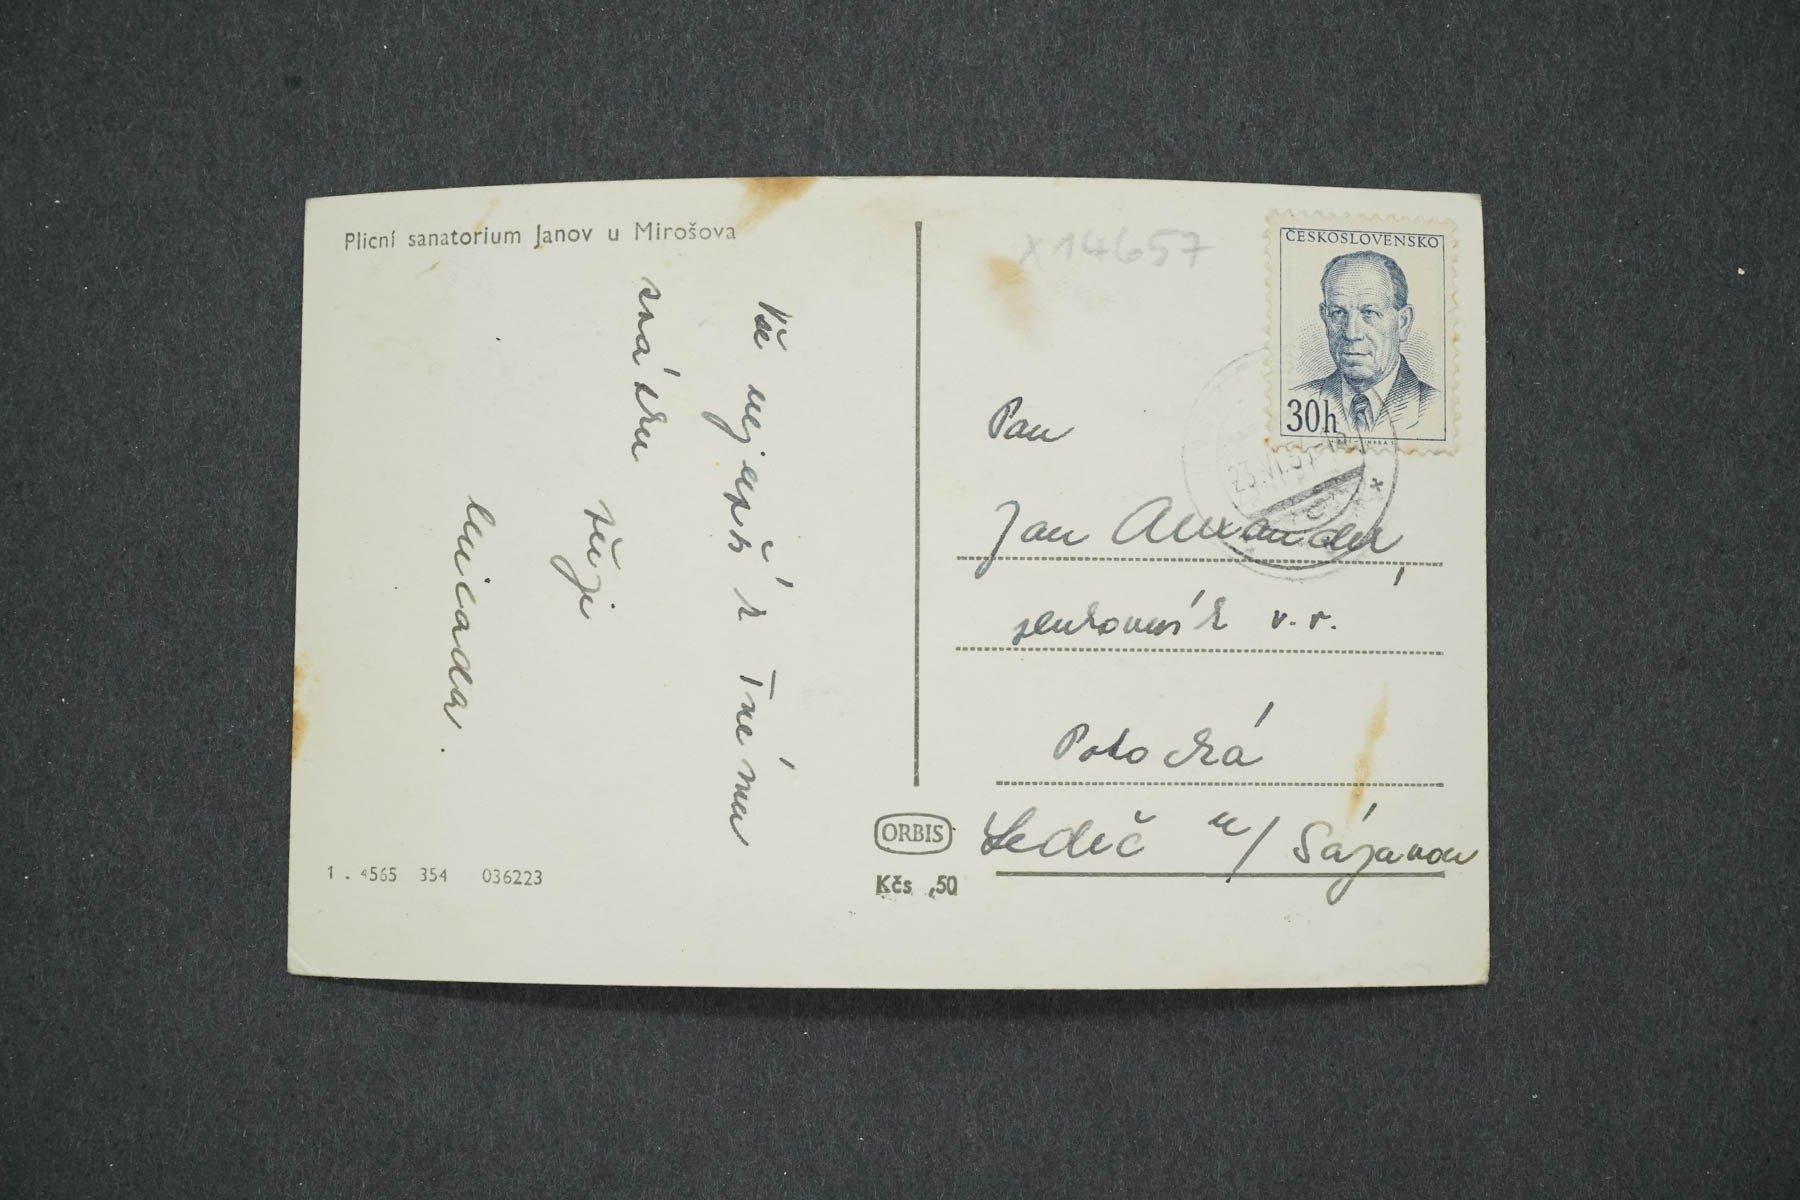 Plicní sanatorium Janov u Mirošova
Vše nejlepší k Tvému
svátku
Tvůj
1 . 4565 354 036223
ORBIS
Kčs ,50
X14657
ČESKOSLOVENSKO
30h
23.VI.57
Pan
Jan Alexander,
v.v.
Potocká
Ledeč n/ Sázavou